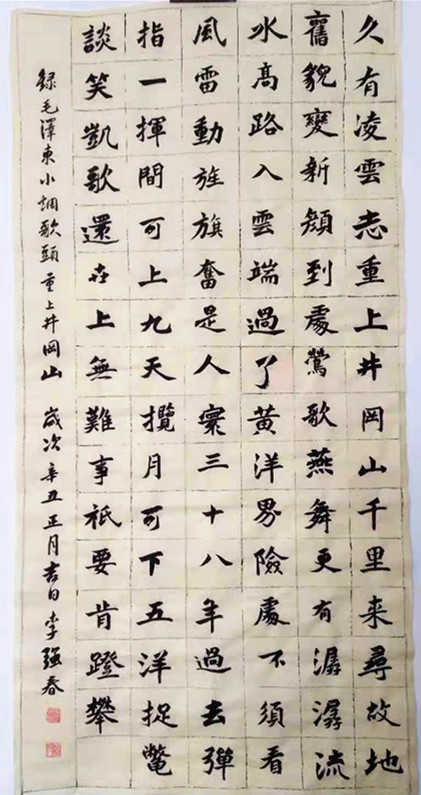 久有凌雲志重上井岡山千里来尋故地
舊貌變新顏到處鶯歌燕舞更有潺潺流
水高路入雲端過了黄洋界險處不須看
風雷動旌旗奮是人寰三十八年過去彈
指一揮間可上九天攬月可下五洋捉鱉
談笑凱歌還世上無難事祇要肯蹬攀
録毛澤東小調歌頭重上井岡山 歲次辛丑正月吉日李强春